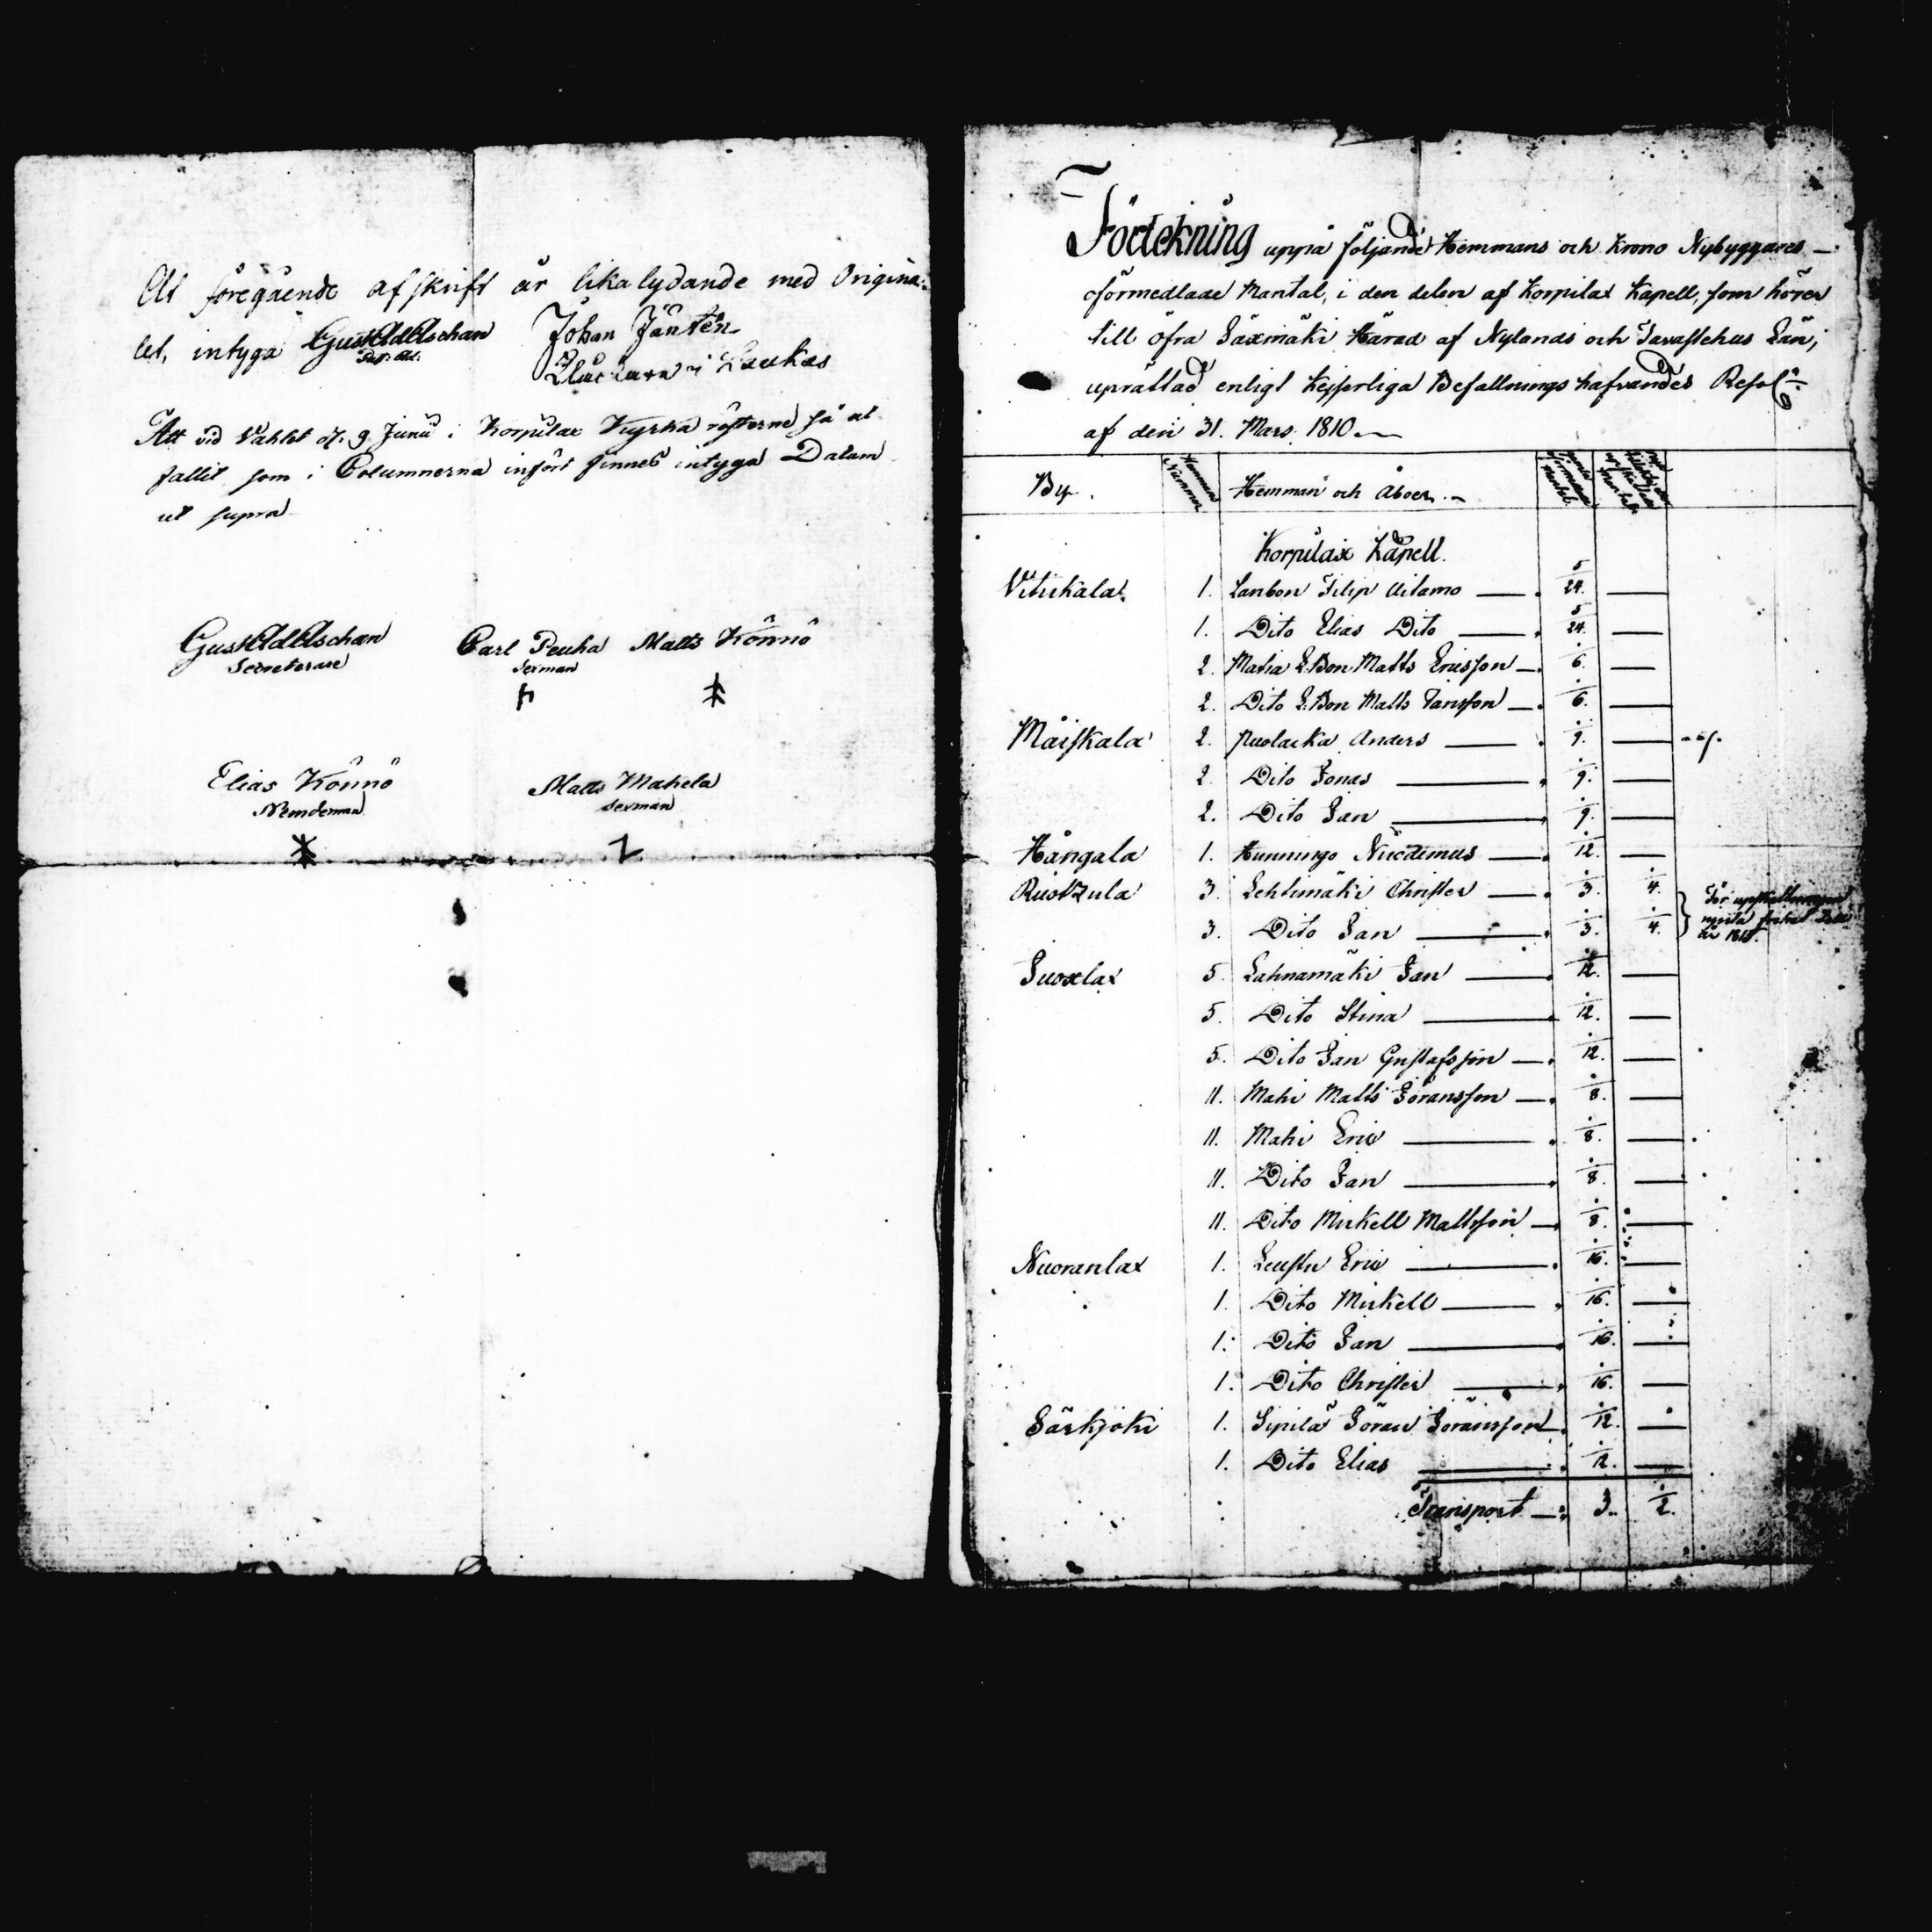 At föregående afskrift är lika lydande med Origina-
let, intyga Gust Ad Aschan Johan Jänten
i Laukas
Att vid Vahlet d. 9 Junii i Korpilax Kyrka rösterne så ut-
fallit som i Columnerna infört finnes intyga Datum
ut supra
Gust Ad Aschan Carl Peuha Matts Könnö
Secreterare Sexman
Elias Könnö Matts Mahela
Nemdeman Sexman
Förtekning uppå följande Hemmans och Krono Nybyggares
oförmedlade Mantal, i den delen af Korpilax Kapell, som hörer
till öfra Säxmäki Härad af Nylands och Tavastehus Län,
uprättad enligt Kejserliga Befallningshafvandes Resol:
af den 31. Mars 1810
By. Hemman Nummer Hemman och Åboer.
Korpilax Kapell.
Vihikala. 1. Lanbon Filip Ailamo 5/24.
1. Dito Elias Dito 5/24.
2. Matia L.Bon Matts Ericsson 1/6.
2. Dito L.Bon Matts Jansson 1/6.
Maiskala 2. Puolacka Anders 1/9.
2. Dito Jonas 1/9.
2. Dito Jan 1/9.
Hangala 1. Hunningo Nicodemus 1/12.
Ruotzula 3. Lehtimäki Christer 1/3. 1/4.
3. Dito Jan 1/3. 1/4.
år 1815.
Suoxlax 5. Lahnamäki Jan 1/12.
5. Dito Stina 1/12.
5. Dito Jan Gustafsson 1/12.
11. Mahi Matts Göransson 1/8.
11. Mahi Eric 1/8.
11. Dito Jan 1/8.
11. Dito Mickell Mattsson 1/8.
Nuoranlax 1. Leustu Eric 1/16.
1. Dito Mickell 1/16.
1. Dito Jan 1/16.
1. Dito Christer 1/16.
Särkjoki 1. Sipilä Göran Göransson 1/12.
1. Dito Elias 1/12.
Transport 3. 1/2.